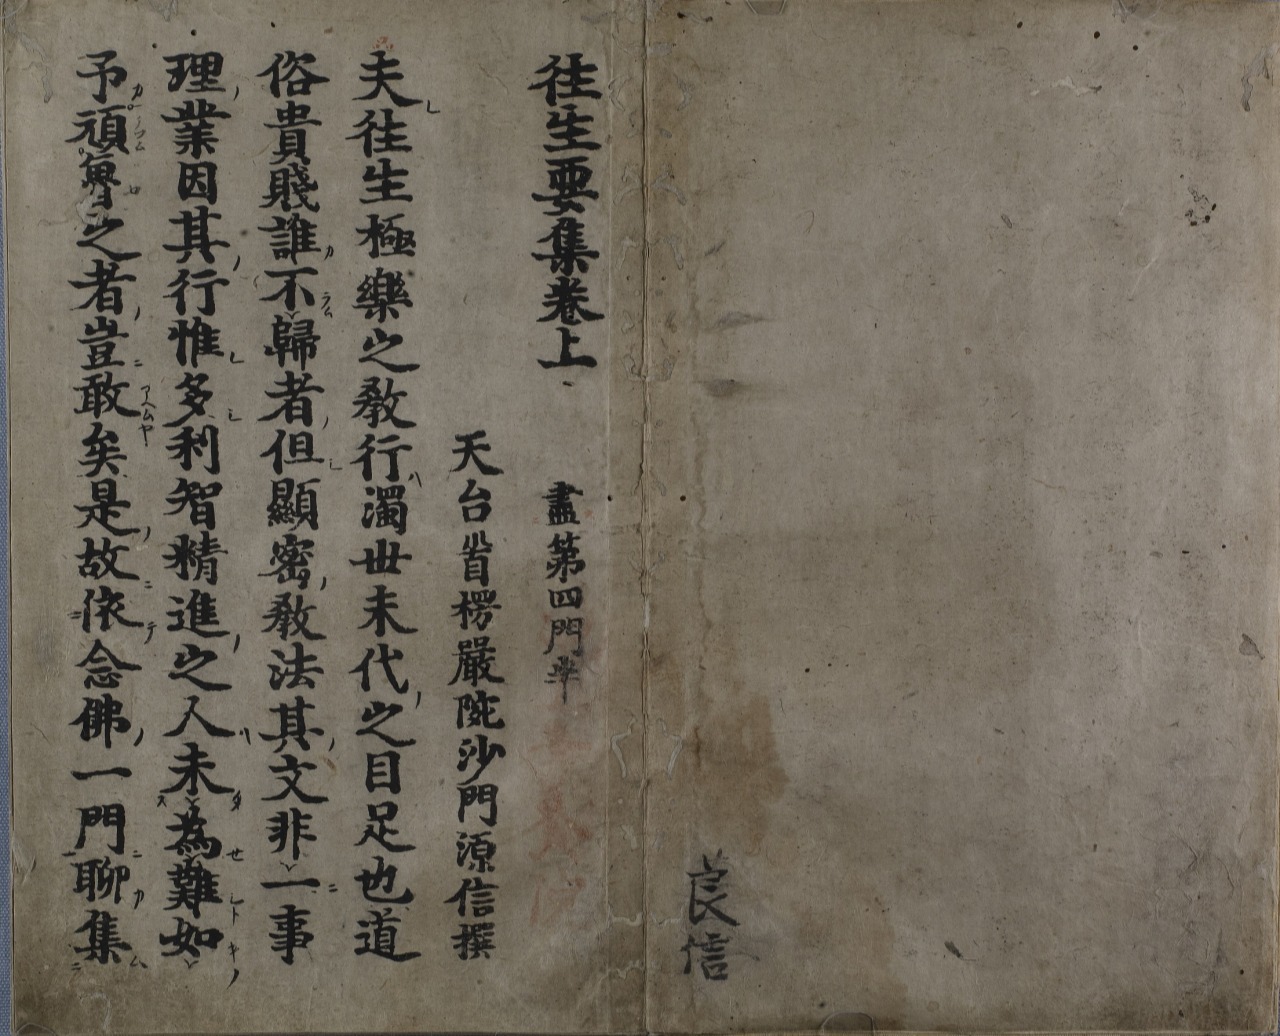 良信
往生要集卷上 盡第四門半
天台首楞嚴院沙門源信撰
夫往生極樂之教行濁世末代之目足也道
俗貴賤誰不歸者但顯密教法其文非一事
理業因其行惟多利智精進之人未為難如
予頑魯之者豈敢矣是故依念佛一門聊集